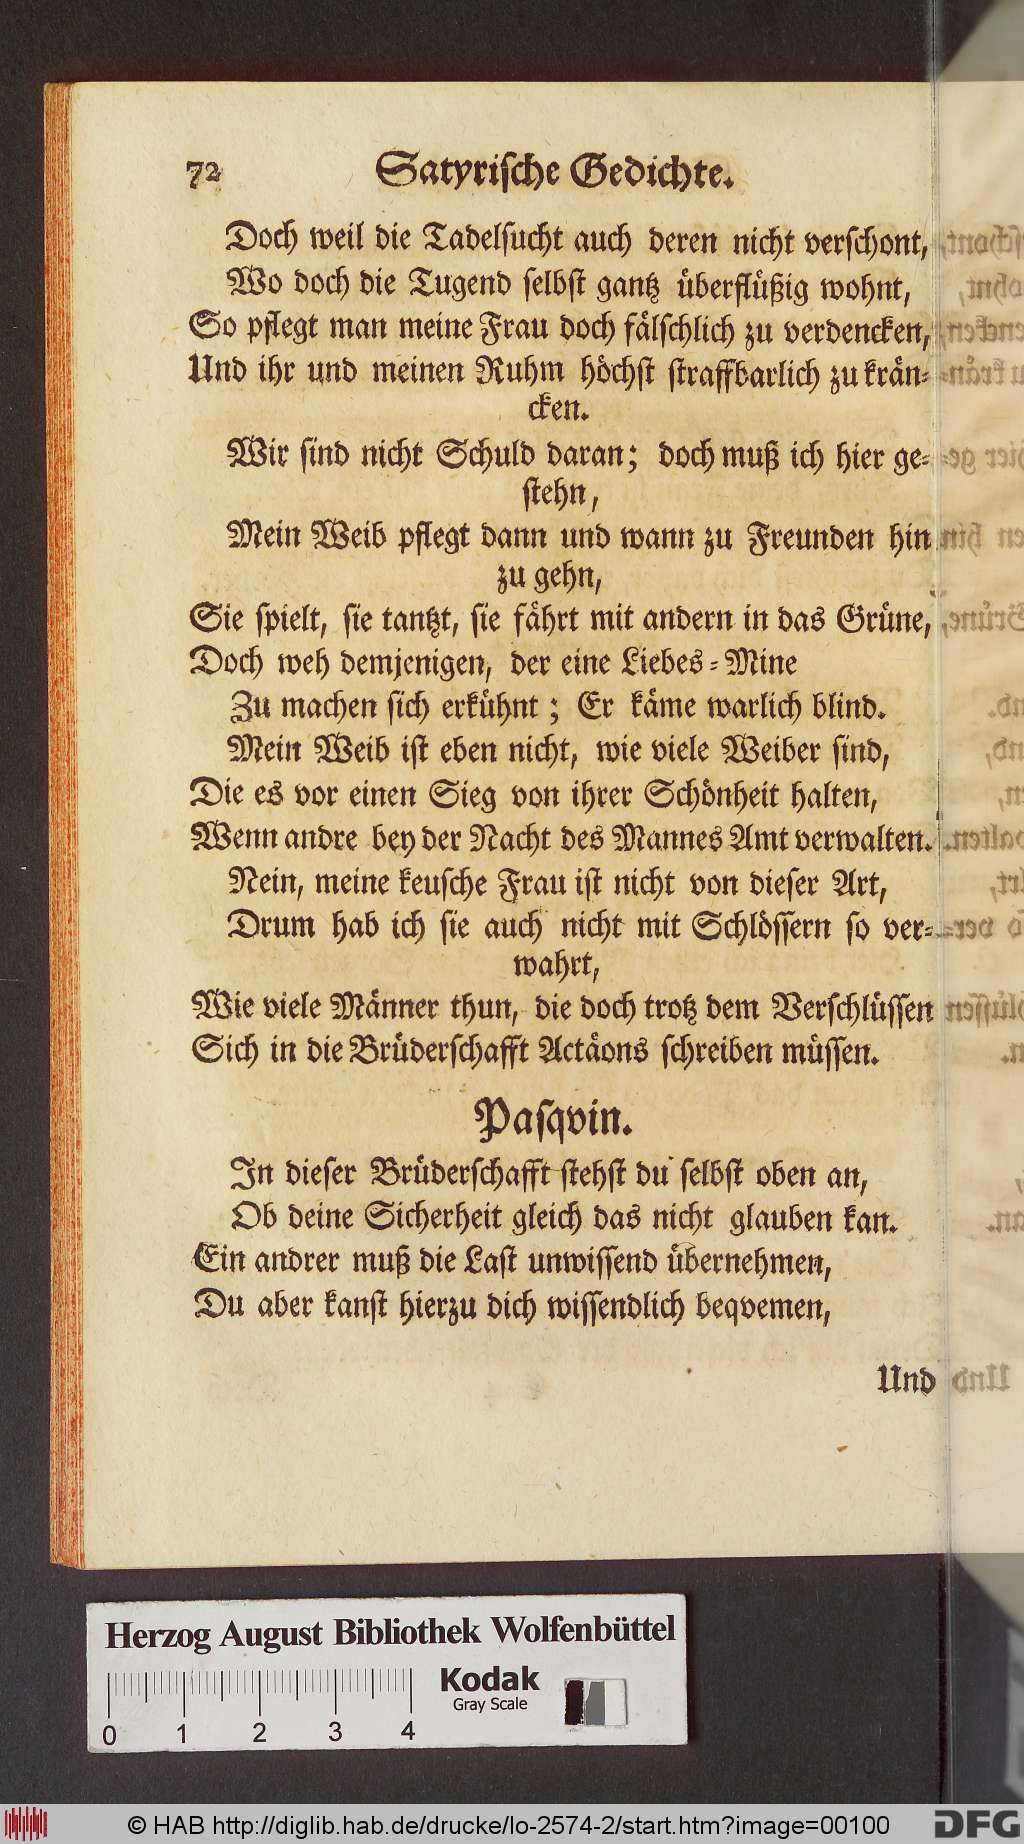 72 Satyrische Gedichte.
Doch weil die Tadelsucht auch deren nicht verschont,
Wo doch die Tugend selbst gantz überflüßig wohnt,
So pflegt man meine Frau doch fälschlich zu verdencken,
Und ihr und meinen Ruhm höchst straffbarlich zu krän-
cken.
Wir sind nicht Schuld daran; doch muß ich hier ge-
stehn,
Mein Weib pflegt dann und wann zu Freunden hin
zu gehn,
Sie spielt, sie tantzt, sie fährt mit andern in das Grüne,
Doch weh demjenigen, der eine Liebes-Mine
Zu machen sich erkühnt; Er käme warlich blind.
Mein Weib ist eben nicht, wie viele Weiber sind,
Die es vor einen Sieg von ihrer Schönheit halten,
Wenn andre bey der Nacht des Mannes Amt verwalten.
Nein, meine keusche Frau ist nicht von dieser Art,
Drum hab ich sie auch nicht mit Schlössern so ver-
wahrt,
Wie viele Männer thun, die doch trotz dem Verschlüssen
Sich in die Brüderschafft Actäons schreiben müssen.
Pasqvin.
In dieser Brüderschafft stehst du selbst oben an,
Ob deine Sicherheit gleich das nicht glauben kan.
Ein andrer muß die Last unwissend übernehmen,
Du aber kanst hierzu dich wissendlich beqvemen,
Und
Herzog August Bibliothek Wolfenbüttel
Kodak
Gray Scale
0 1 2 3 4
© HAB http://diglib.hab.de/drucke/lo-2574-2/start.htm?image=00100
DFG